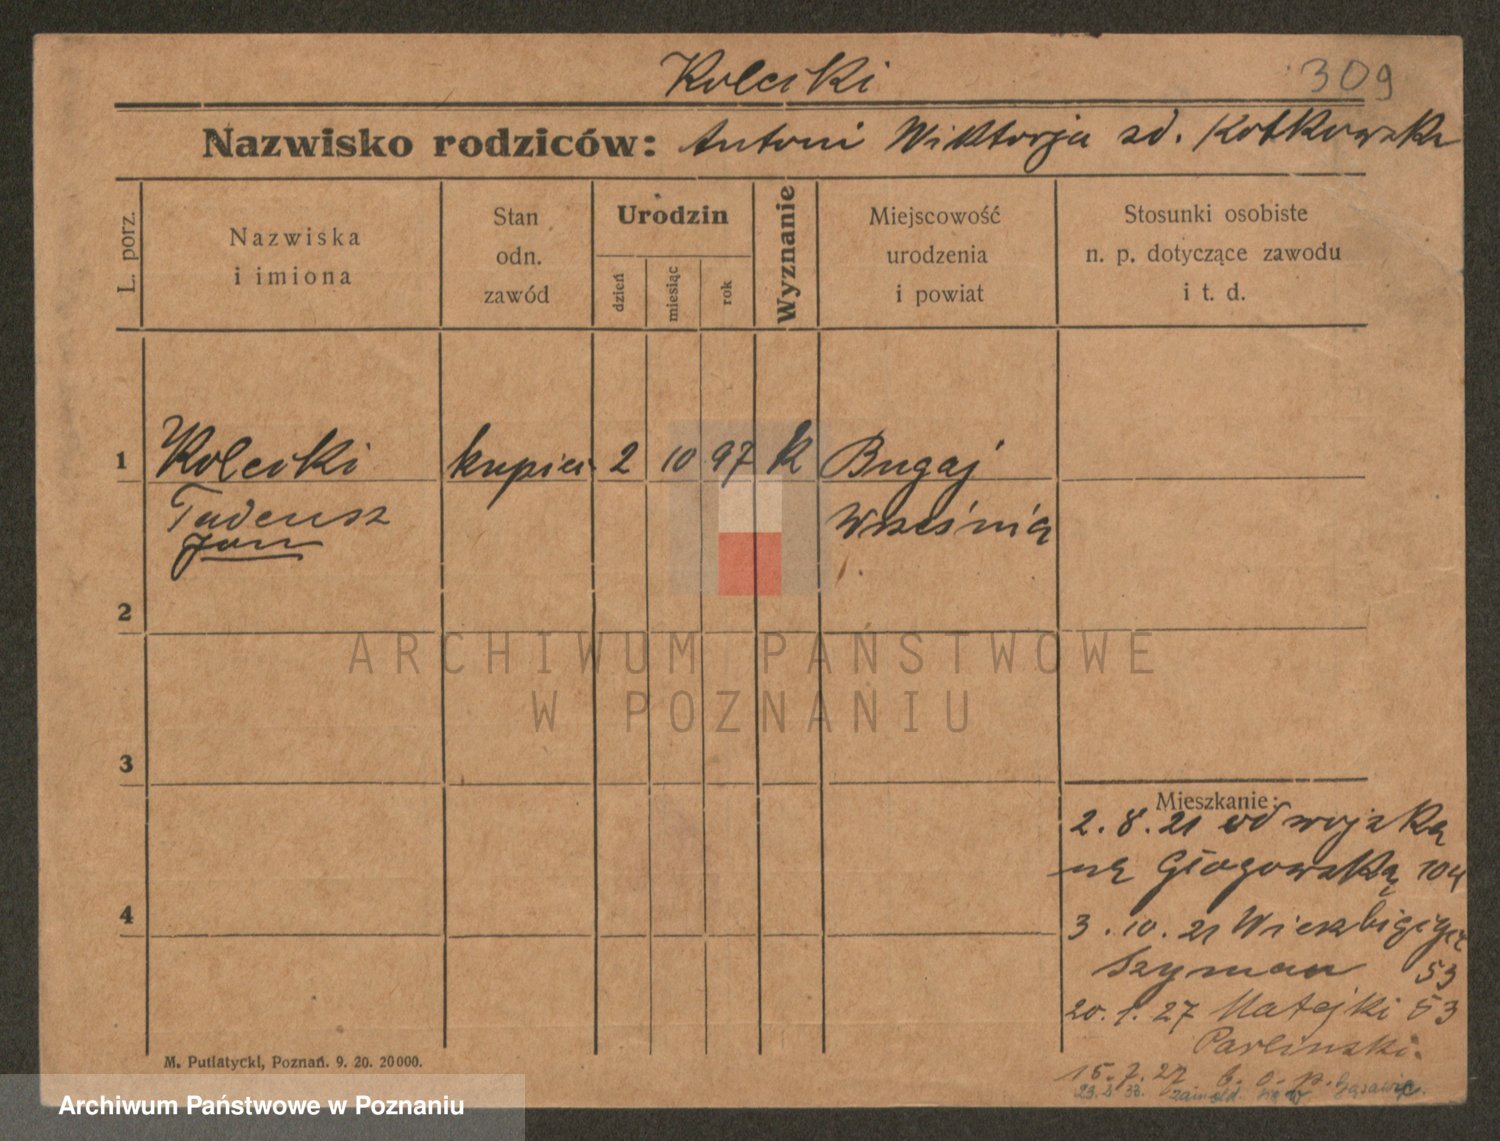 Kolecki
309
Nazwisko rodziców: Antoni Wiktorja zd. Kotkowska
L. porz.
Nazwiska
i imiona
Stan
odn.
zawód
Urodzin
dzień
miesiąc
rok
Wyznanie
Miejscowość
urodzenia
i powiat
Stosunki osobiste
n. p. dotyczące zawodu
i t. d.
1 Kolecki kupiec 2 10 97 k Bugaj
Tadeusz Września
Jan
2
3
4
Mieszkanie:
2. 8. 21 od wojska
na Głogowską 104
3. 10. 21
Szyman 53
20. 1. 27 Matejki 53
Parlinski.
15. 7. 27
M. Putiatycki, Poznań. 9. 20. 20000.
ARCHIWUM PAŃSTWOWE
W POZNANIU
Archiwum Państwowe w Poznaniu